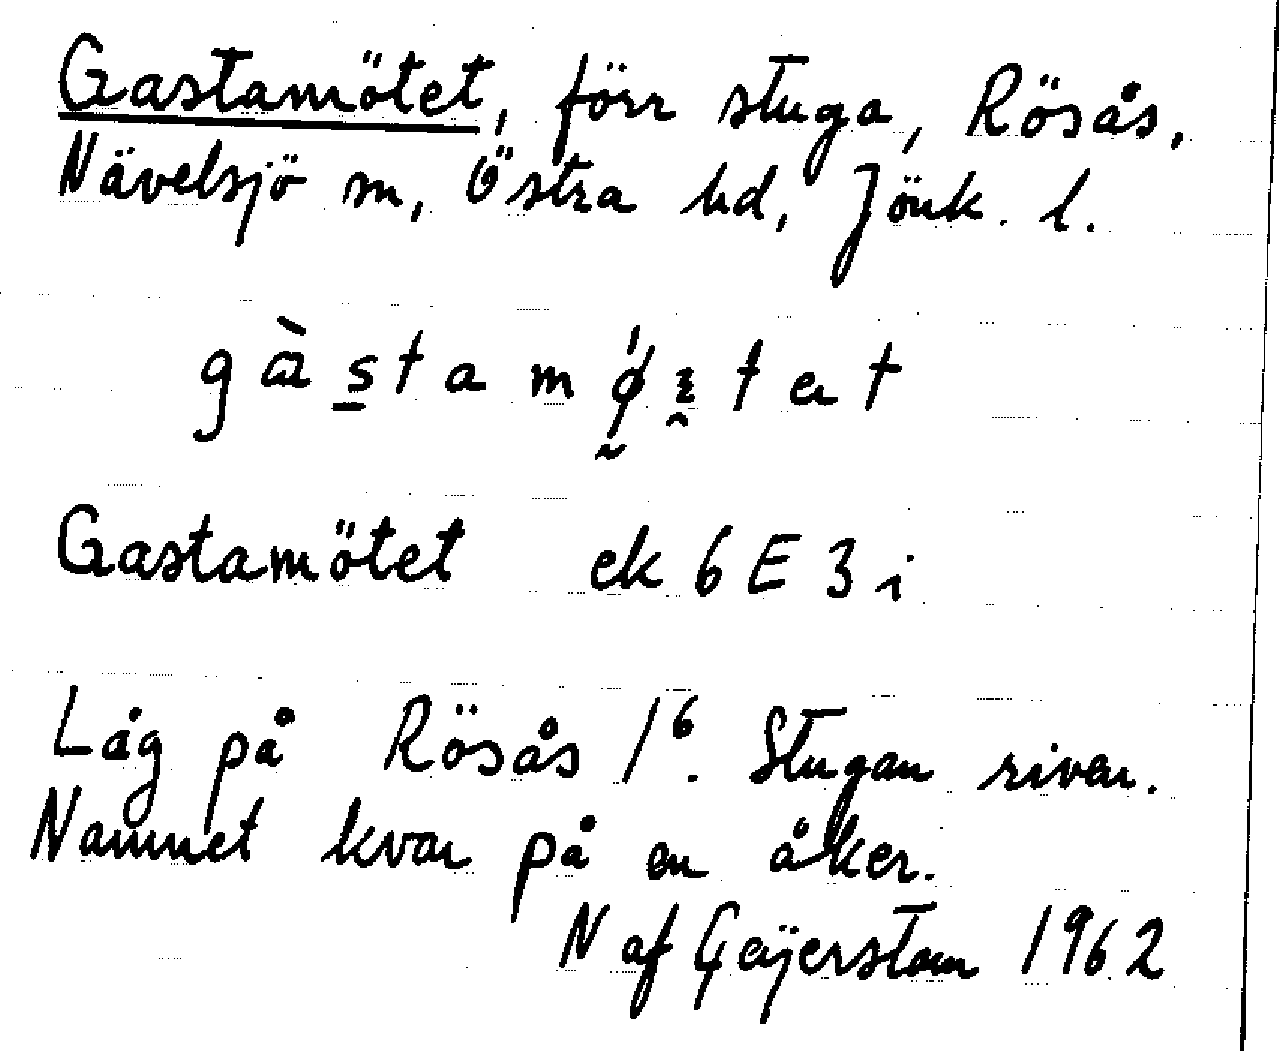 Gastamötet, förr stuga, Rösås,
Nävelsjö sn, Östra hd, Jönk. l.
Gastamötet ek 6 E 3 i
Låg på Rösås 1⁶. Stugan riven.
Namnet kvar på en åker.
N af Geijerstam 1962